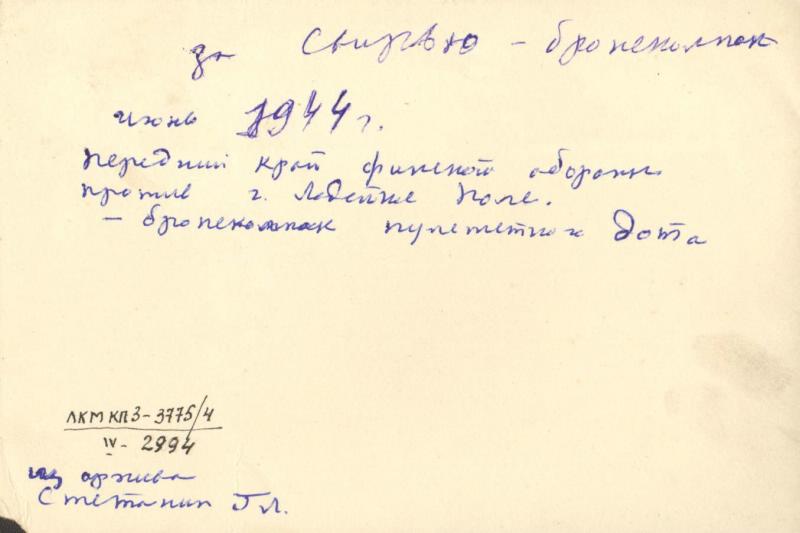 за Свирью - бронеколпак
июнь 1944 г.
передний край финской обороны
против г. Лодейное Поле.
- бронеколпак пулеметного дота
ЛКМ КП3-3775/4
IV- 2994
из архива
Г.Л.